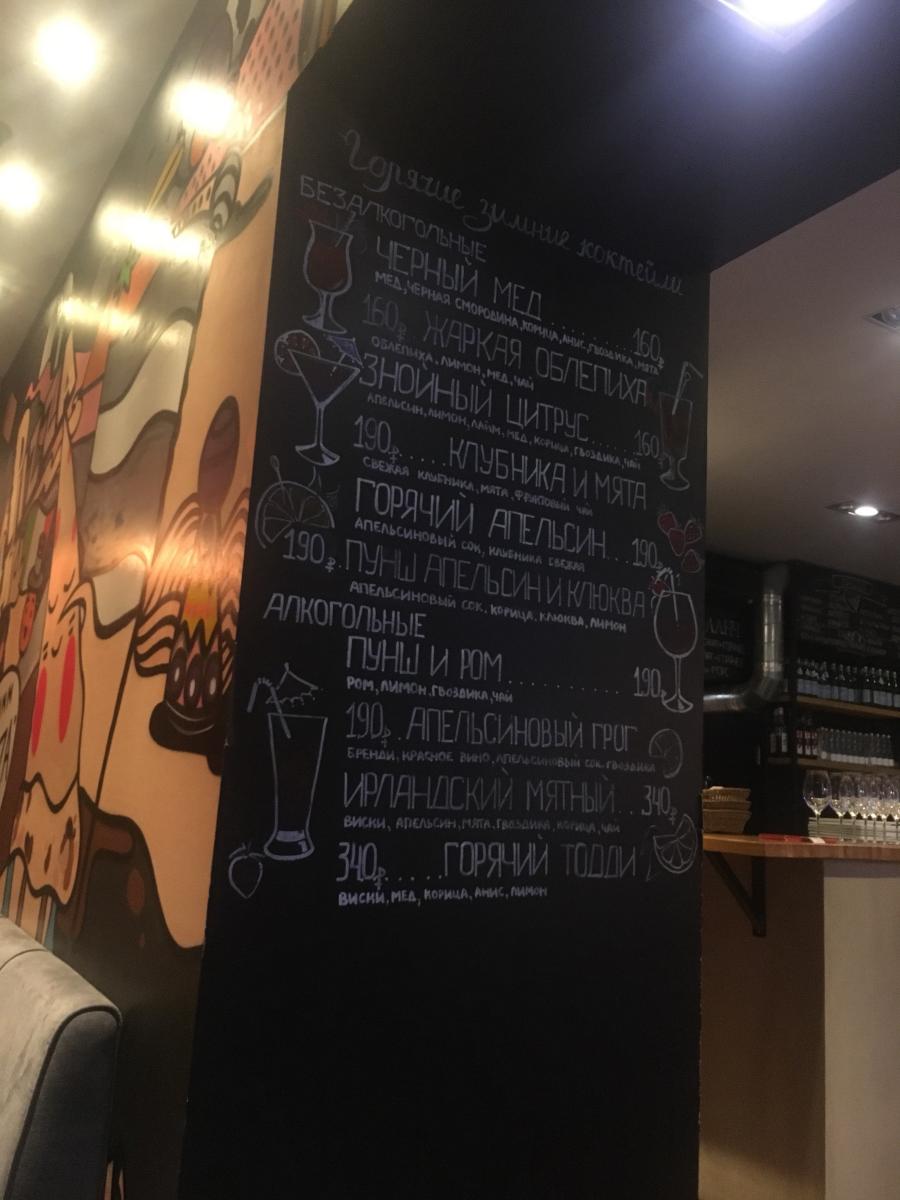 Горячие зимние коктейли
БЕЗАЛКОГОЛЬНЫЕ
ЧЕРНЫЙ МЕД..........160₽
МЕД, ЧЕРНАЯ СМОРОДИНА, КОРИЦА, АНИС, ГВОЗДИКА, МЯТА
160₽ ЖАРКАЯ ОБЛЕПИХА
ОБЛЕПИХА, ЛИМОН, МЕД, ЧАЙ
ЗНОЙНЫЙ ЦИТРУС....160
АПЕЛЬСИН, ЛИМОН, ЛАЙМ, МЕД, КОРИЦА, ГВОЗДИКА, ЧАЙ
190₽.....КЛУБНИКА И МЯТА
СВЕЖАЯ КЛУБНИКА, МЯТА, ФРУКТОВЫЙ ЧАЙ
ГОРЯЧИЙ АПЕЛЬСИН...190₽
АПЕЛЬСИНОВЫЙ СОК, КЛУБНИКА СВЕЖАЯ
190₽.ПУНШ АПЕЛЬСИН И КЛЮКВА
АПЕЛЬСИНОВЫЙ СОК, КОРИЦА, КЛЮКВА, ЛИМОН
АЛКОГОЛЬНЫЕ
ПУНШ И РОМ..........190₽
РОМ, ЛИМОН, ГВОЗДИКА, ЧАЙ
190₽.АПЕЛЬСИНОВЫЙ ГРОГ
БРЕНДИ, КРАСНОЕ ВИНО, АПЕЛЬСИНОВЫЙ СОК, ГВОЗДИКА
ИРЛАНДСКИЙ МЯТНЫЙ...340₽
ВИСКИ, АПЕЛЬСИН, МЯТА, ГВОЗДИКА, КОРИЦА, ЧАЙ
340₽.....ГОРЯЧИЙ ТОДДИ
ВИСКИ, МЕД, КОРИЦА, АНИС, ЛИМОН